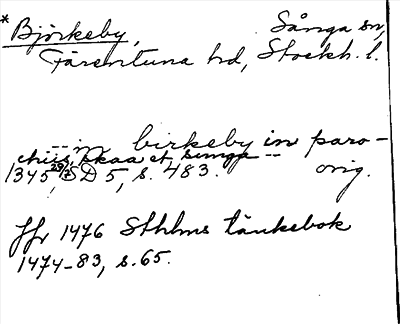 * Björkeby, Sånga sn,
Färentuna hd, Stockh. l.
-- in birkeby in paro-
chiis skaa et sunga --
1345 29/7, SD 5, s. 483. orig.
Jfr 1476 Sthlms tänkebok
1474-83, s. 65.